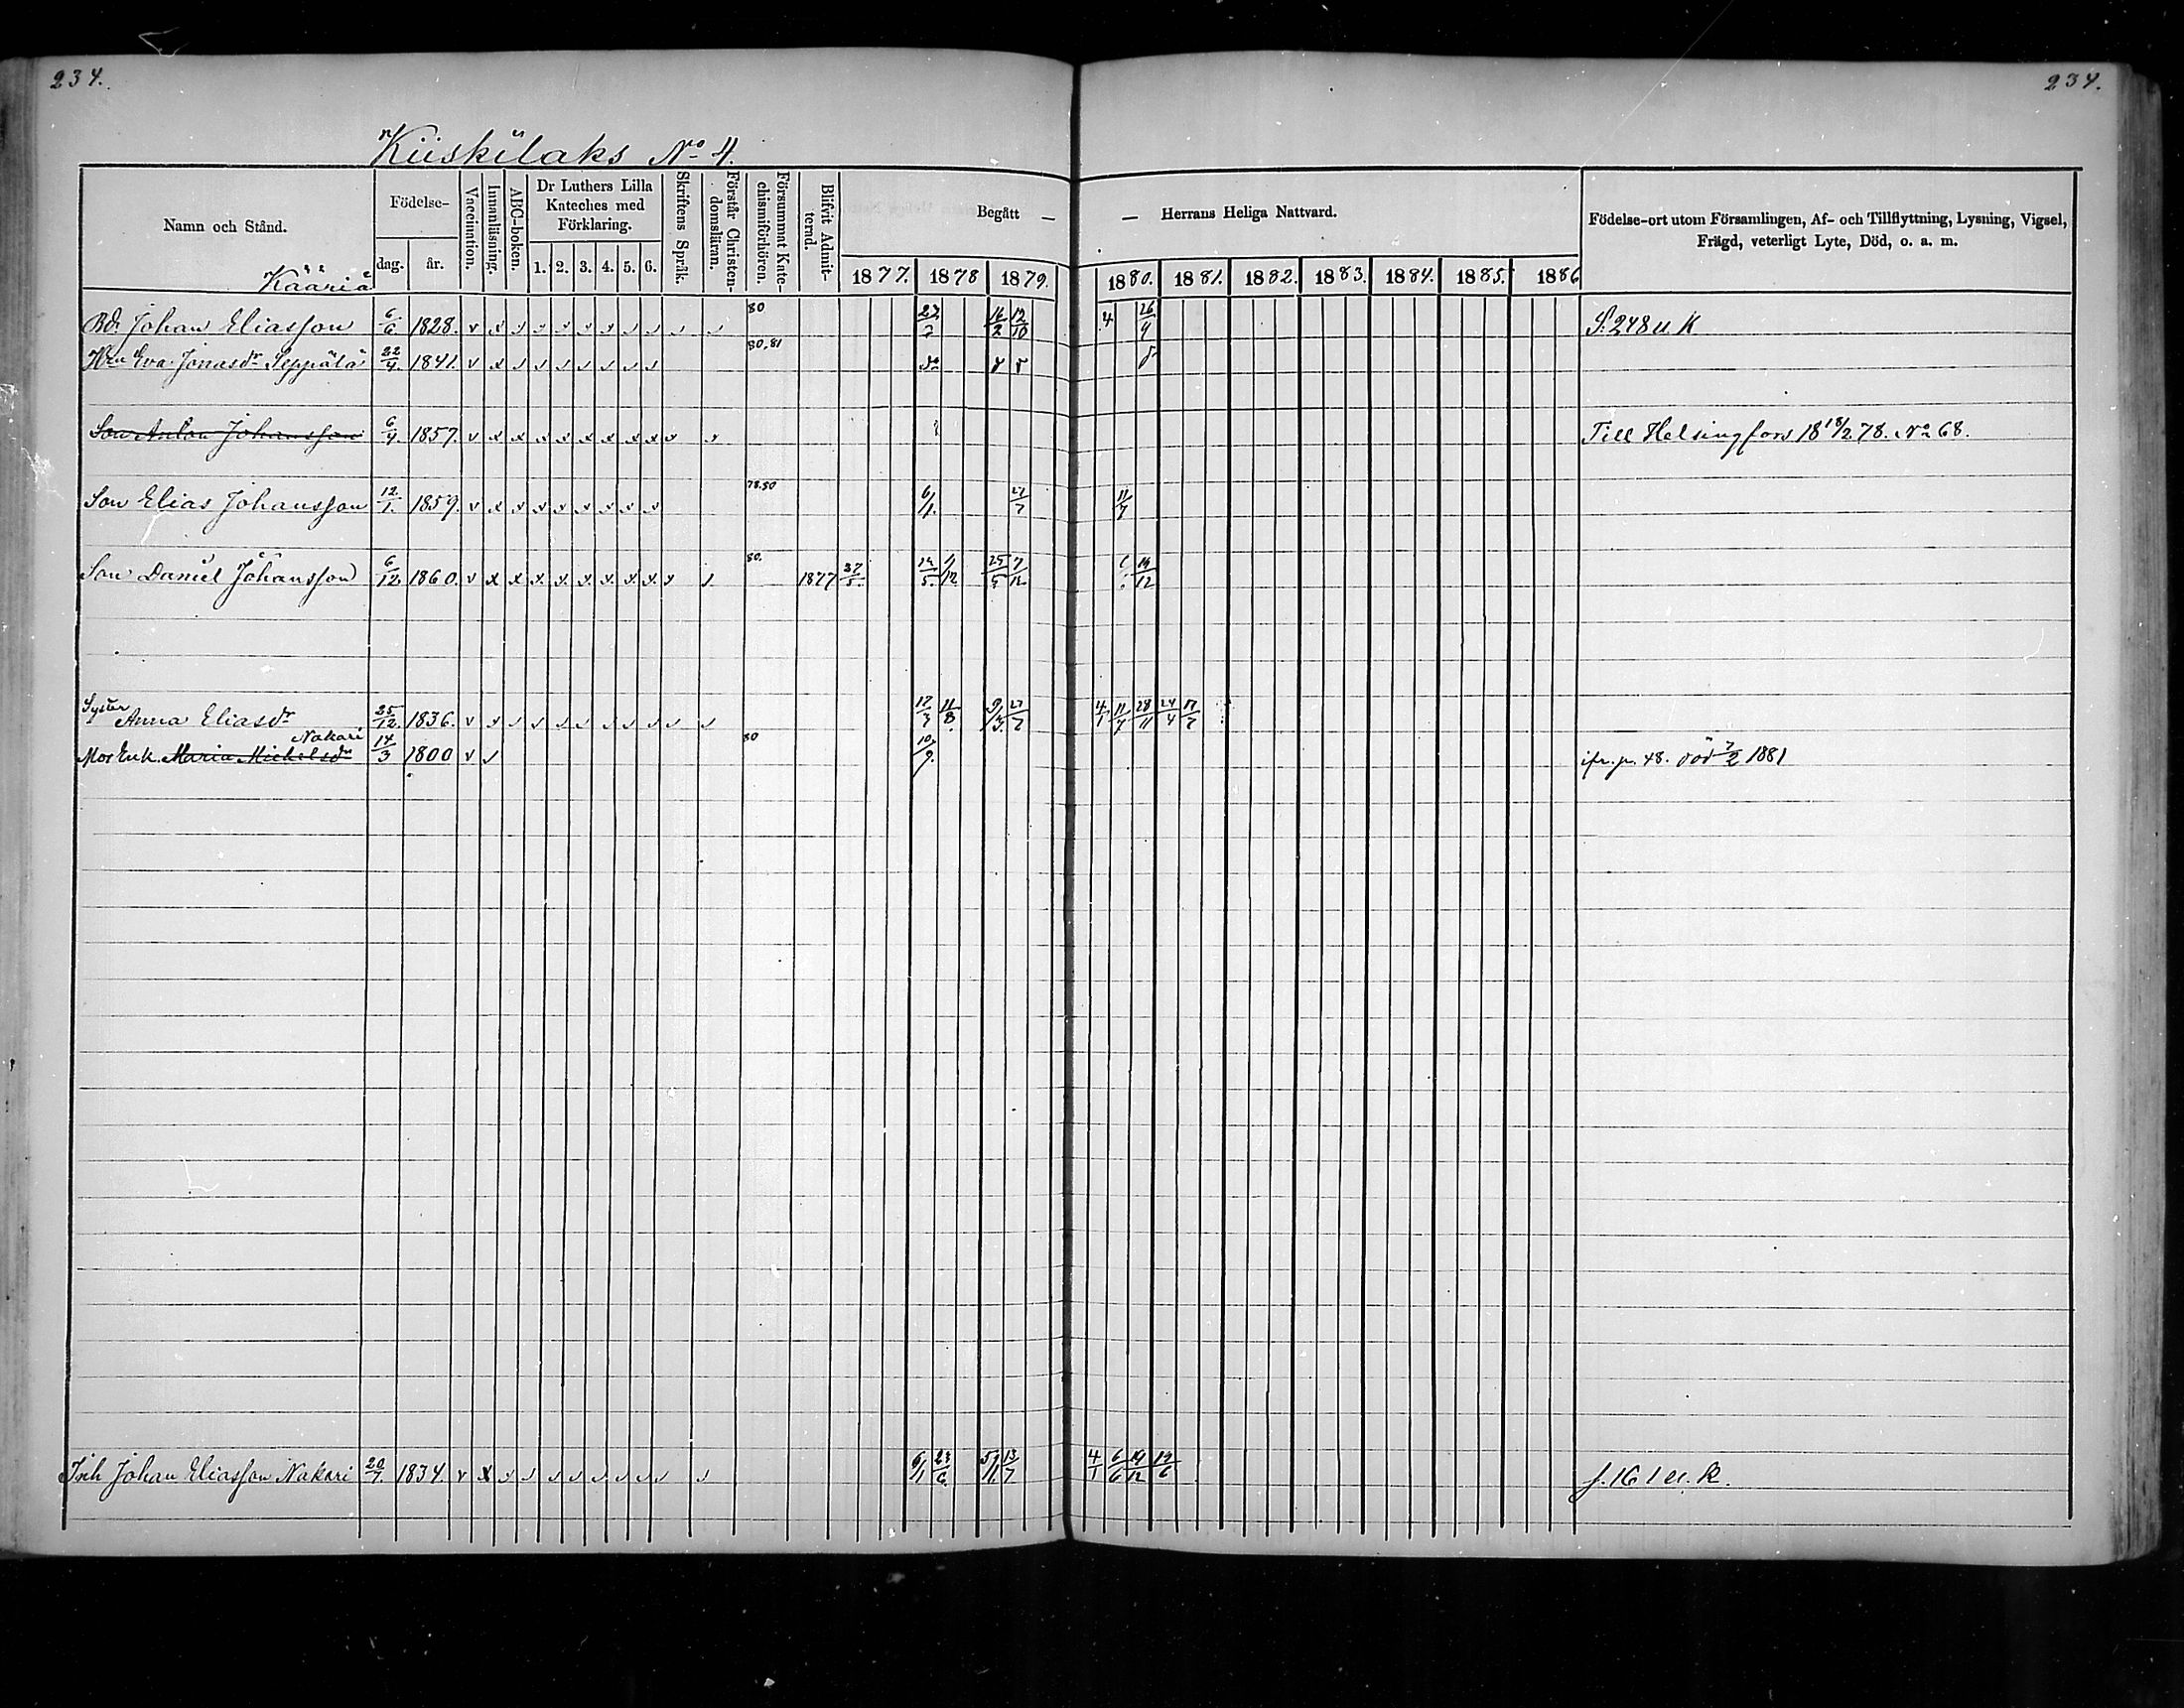 234.
234.
Kiiskilaks No 4.
Namn och Stånd.
Födelse-
dag.
år.
Vaccination.
Innanläsning.
ABC-boken.
Dr Luthers Lilla
Kateches med
Förklaring.
1. 2. 3. 4. 5. 6.
Skriftens Språk.
Förstår Christen-
domsläran.
Försummat Kate-
chismiförhören.
Blifvit Admit-
terad.
Begått — — Herrans Heliga Nattvard.
1877. 1878 1879. 1880. 1881. 1882. 1883. 1884. 1885. 1886
Födelse-ort utom Församlingen, Af- och Tillflyttning, Lysning, Vigsel,
Frägd, veterligt Lyte, Död, o. a. m.
Kääriä
Bd. Johan Eliasson 6/6 1828. 80 14/2 12/10 26/9 S. 248 u K
Hu Eva Jonasdr Seppälä 22/4 1841. 80,81
Son Anton Johansson 6/4. 1857. Till Helsingfors 18 18/2 78. No 68.
Son Elias Johansson 12/1. 1859. 6/1. 27/7 11/7
Son Daniel Johansson 6/12 1860. 80. 1877 25/5 14/12
Syster Anna Eliasdr 25/12 1836. 9/3. 27/7 4/1 11/7 28/11 24/4 17/7
Nakari
Mor Enk. Maria Michelsdr 14/3 1800 80 10/9. ifr. p. 48. död 7/2 1881
Inh Johan Eliasson Nakari 20/7. 1834. 6/1 23/6. 13/7 4/1 6/6 19/12 19/6 s. 161 u. k.